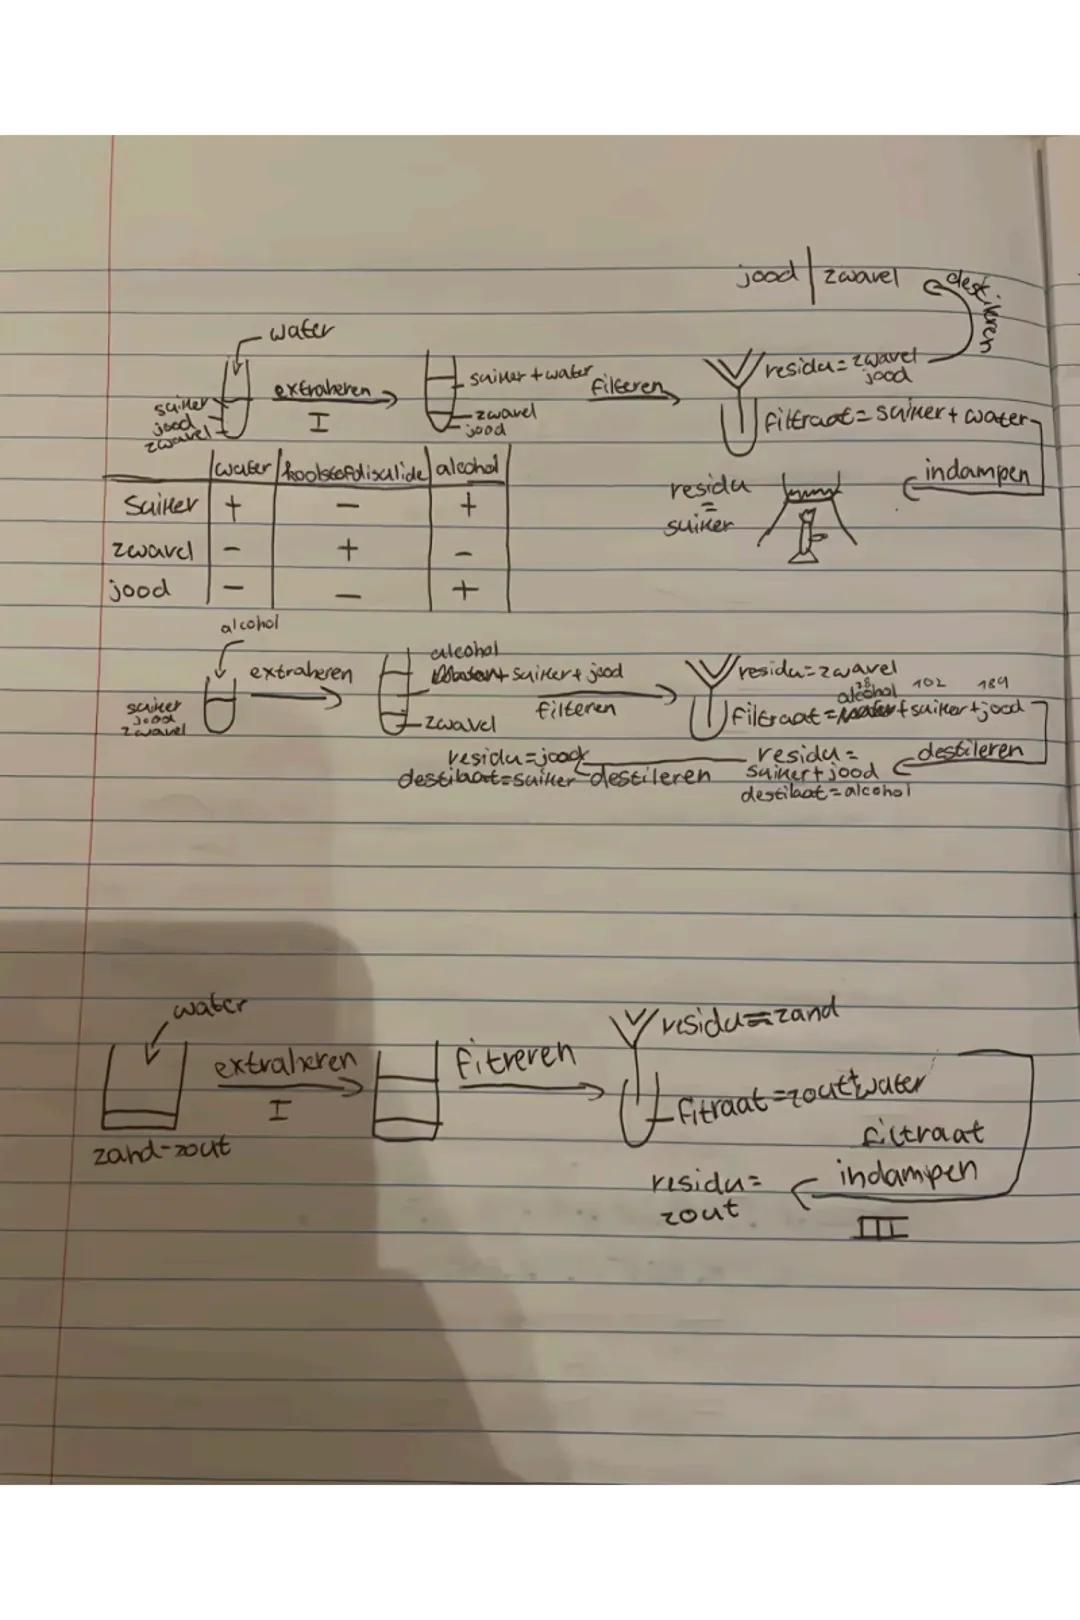 jood | zwavel
destileren
water
suiker
jood
zwavel
extraheren
I
suiker + water
zwavel
jood
filteren
residu = zwavel
jood
filtraat = suiker + water
indampen
residu
=
suiker
water | koolstofdisulide | alcohol
suiker + - +
zwavel - + -
jood - - +
alcohol
suiker
jood
zwavel
extraheren
alcohol
+ suiker + jood
zwavel
filteren
residu = zwavel
78 102 184
alcohol
filtraat = + suiker + jood
destileren
residu =
suiker + jood
destilaat = alcohol
destileren
residu = jood
destilaat = suiker
water
zand-zout
extraheren
I
fitreren
residu = zand
fitraat = zout + water
filtraat
indampen
III
residu =
zout